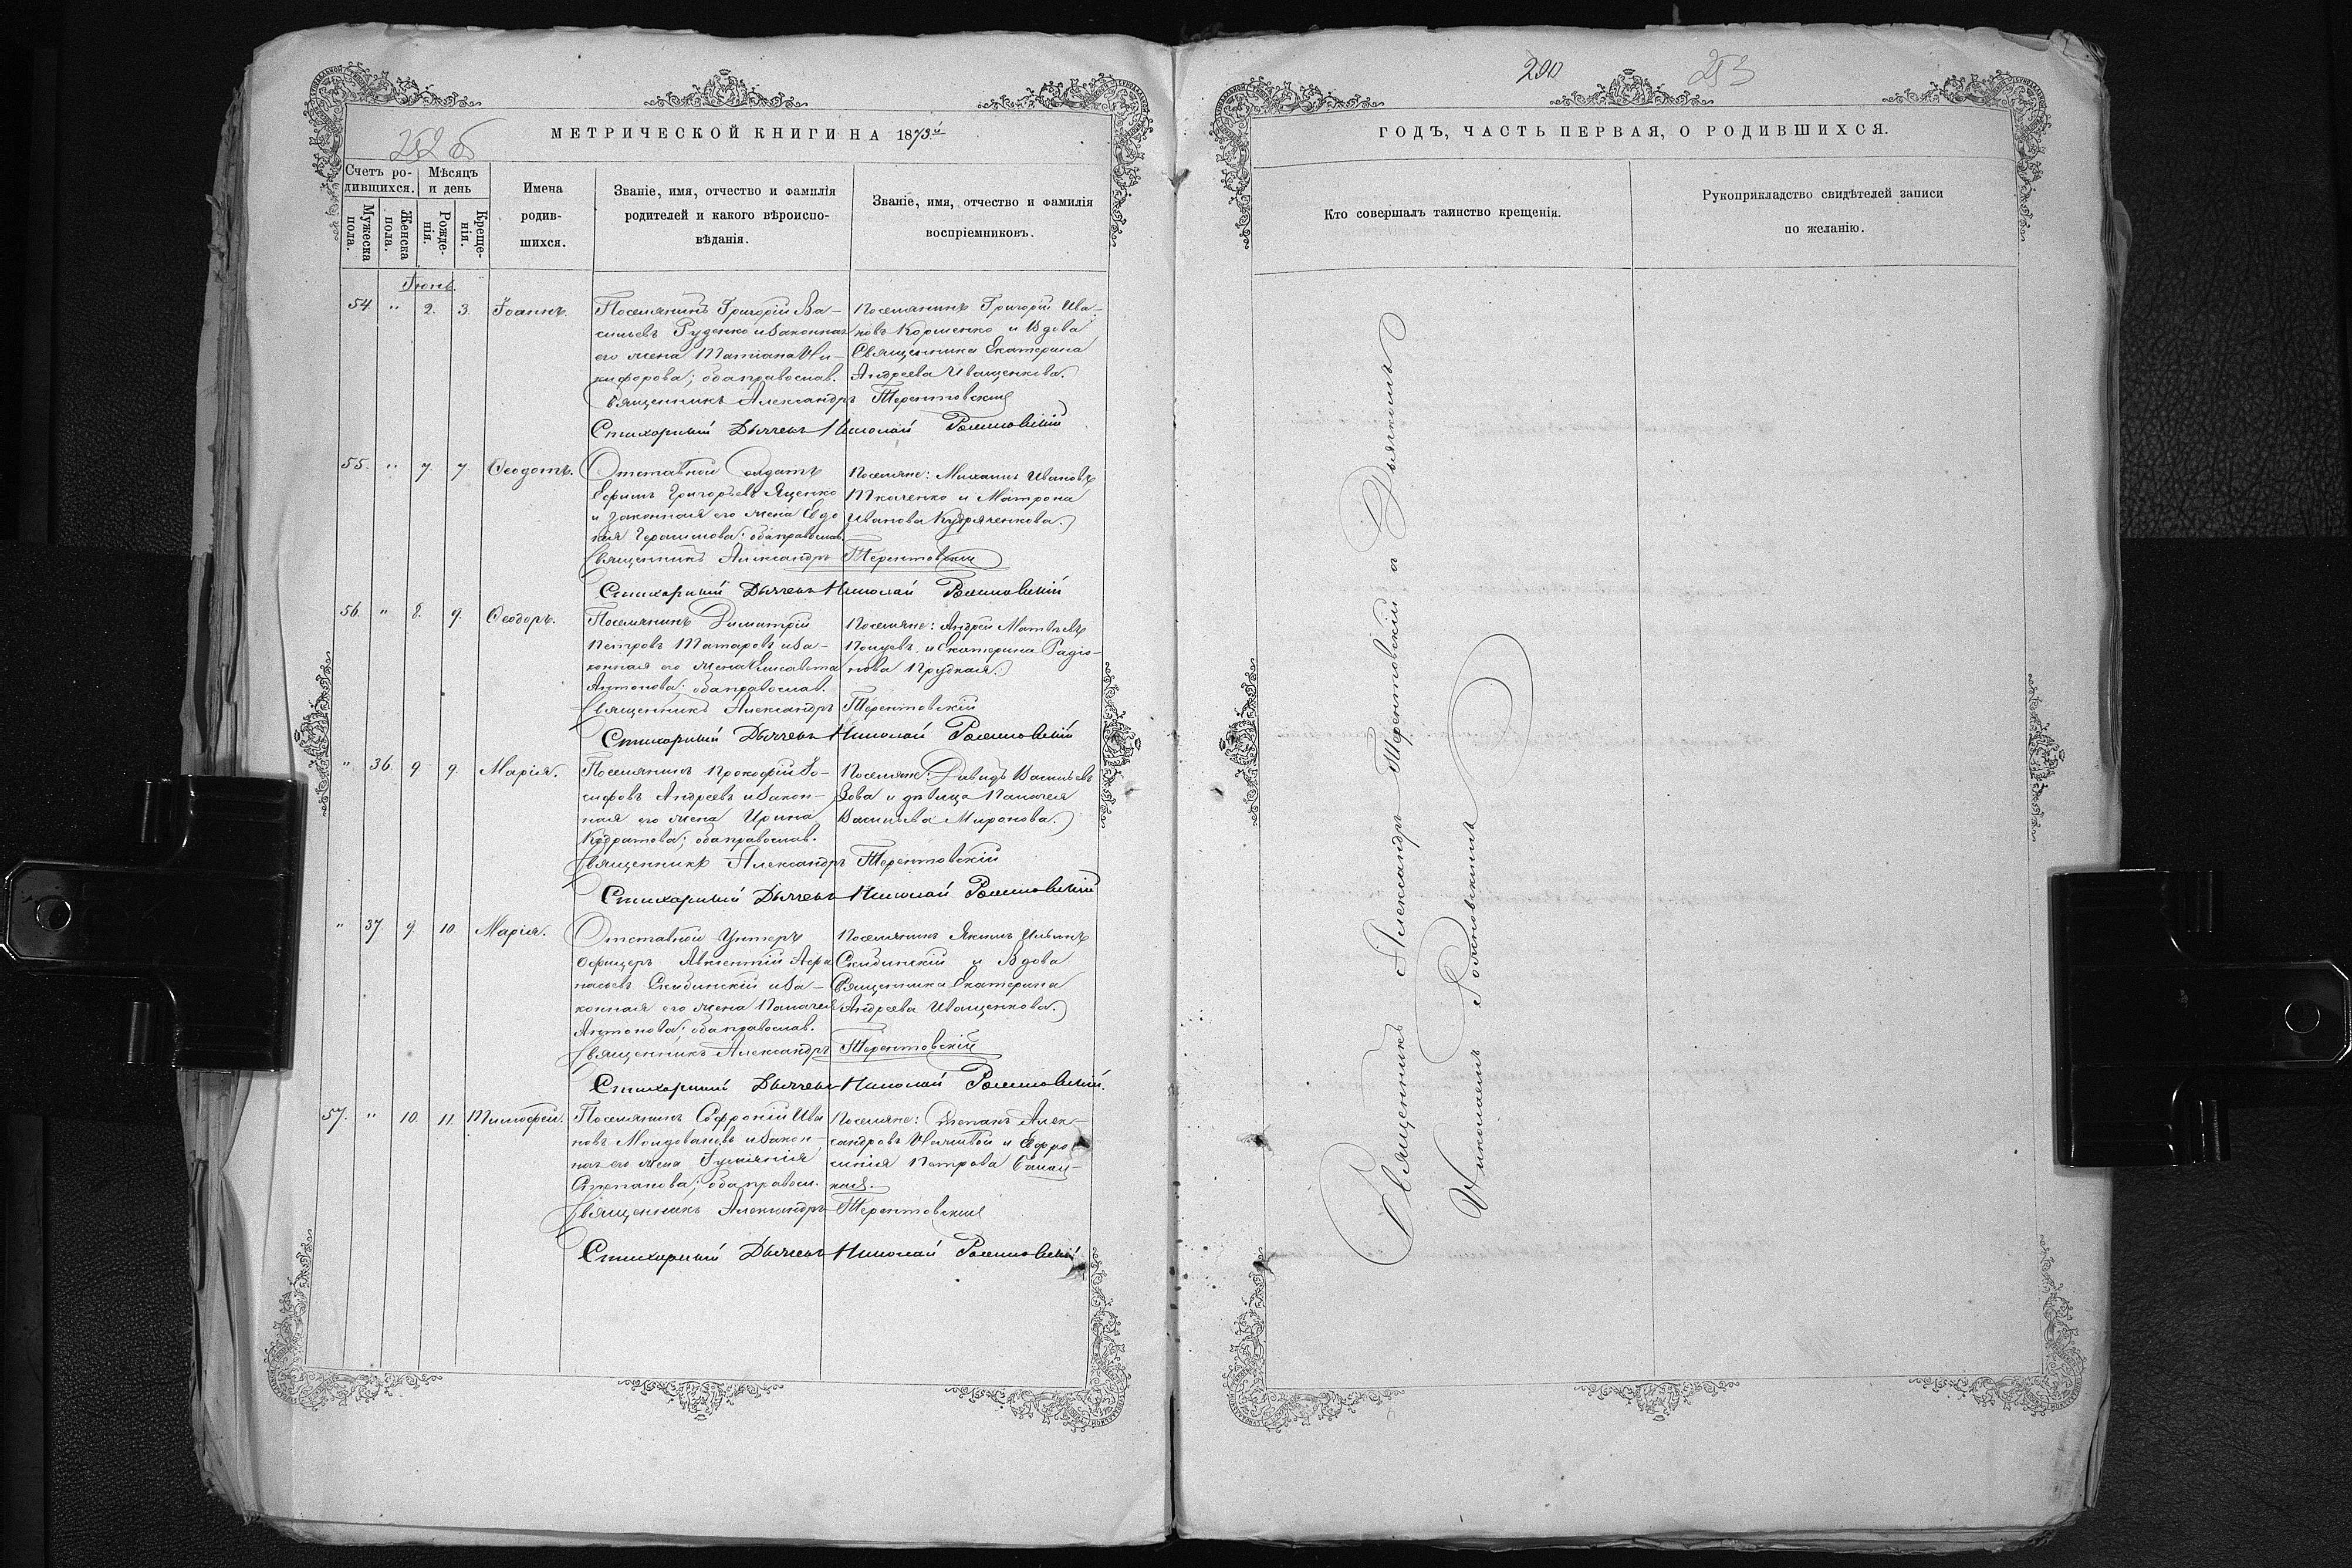 252 б
МЕТРИЧЕСКОЙ КНИГИ НА 1873й
Счетъ родившихся.
Мужеска пола.
Женска пола.
Мѣсяцъ и день
Рожденія.
Крещенія.
Имена родившихся.
Званіе, имя, отчество и фамилія
родителей и какого вѣроиспо-
вѣданія.
Званіе, имя, отчество и фамилія
воспріемниковъ.
Іюнь.
54. " 2. 3. Іоаннъ.
Поселянинъ Григорій Ва-
сильевъ Руденко и законная
его жена Татіана Ни-
кифорова; оба православ.
Поселянинъ Григорій Ива-
новъ Корженко и вдова
Священника Екатерина
Андреева Иващенкова.
Священникъ Александръ Терентовскій
Стихарный Дьячекъ Николай
55. " 7. 7. Ѳеодотъ.
Отставной солдатъ
Ефимъ Григорьевъ Яценко
и законная его жена Евдо
кія Герасимова; оба православ.
Поселяне: Михаилъ Ивановъ
Ткаченко и Матрона
Иванова Кудряченкова.
Священникъ Александръ Терентовскій
Стихарный Дьячекъ Николай
56. " 8. 9. Ѳеодоръ.
Поселянинъ Димитрій
Петровъ Татаровъ и за-
конная его жена Елисавета
Антонова; оба православ.
Поселяне: Андрей Матвѣевъ
и Екатерина Радіо-
нова Прудкая.
Священникъ Александръ Терентовскій
Стихарный Дьячекъ Николай
" 36. 9. 9. Марія.
Поселянинъ Прокофій Іо-
сифовъ Андреевъ и закон-
ная его жена Ирина
Кодратова; оба православ.
Поселяне: Давидъ Васильевъ
и дѣвица Палагея
Васильева Миронова.
Священникъ Александръ Терентовскій
Стихарный Дьячекъ Николай
" 37. 9. 10. Марія.
Отставной Унтеръ
Офицеръ Авксентій Афа
насьевъ Скибинскій и за-
конная его жена Палагея
Антонова; оба православ.
Поселянинъ Якимъ Ильинъ
Скибинскій и вдова
Священника Екатерина
Андреева Иващенкова.
Священникъ Александръ Терентовскій
Стихарный Дьячекъ Николай
57. " 10. 11. Тимофей.
Поселянинъ Софроній Ива
новъ Молдовановъ и закон-
ная его жена Іуліанія
Степанова; оба правосл.
Поселяне: Степанъ Алек-
сандровъ и Ефро
синія Петрова
Священникъ Александръ Терентовскій
Стихарный Дьячекъ Николай
290 253
ГОДЪ, ЧАСТЬ ПЕРВАЯ, О РОДИВШИХСЯ.
Кто совершалъ таинство крещенія.
Рукоприкладство свидѣтелей записи
по желанію.
Священникъ Александръ Терентовскій съ Дьячкомъ
Николаемъ